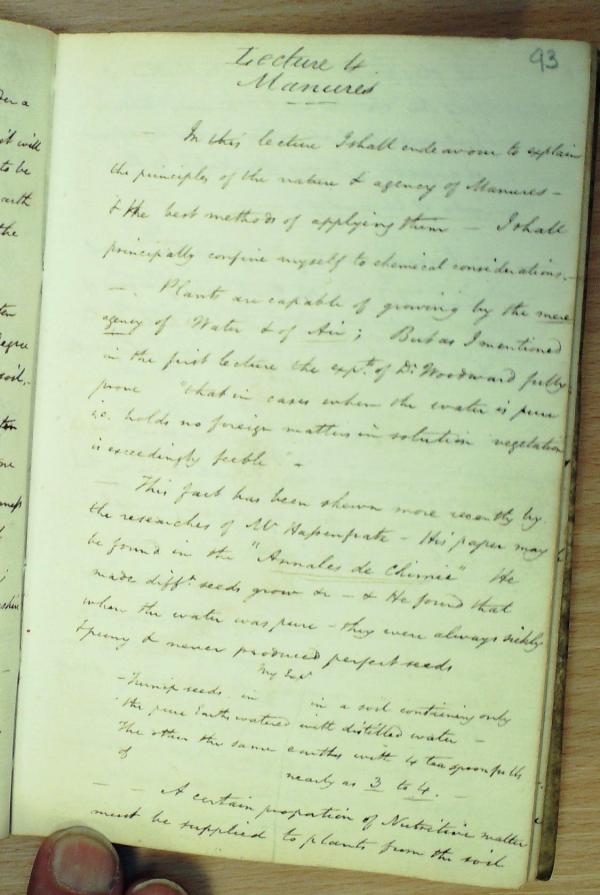 93
Lecture 4
Manures
— In this lecture I shall endeavour to explain
the principles of the nature & agency of Manures —
& the best methods of applying them — I shall
principally confine myself to chemical considerations. —
—. Plants are capable of growing by the mere
agency of Water & of Air; But as I mentioned
in the first lecture the expts. of Dr. Woodward fully
prove "that in cases when the water is pure
i.e. holds no foreign matters in solution vegetation
is exceedingly feeble" —
— This fact has been shewn more recently by
the researches of Mr Hassenfratz — His paper may
be found in the "Annales de Chimie" He
made difft. seeds grow & — & He found that
when the water was pure — they were always sickly
& puny & never produced perfect seeds
My Expt
— Turnip seeds in in a soil containing only
the pure Earths watered with distilled water —
The other the same earths with 4 tea spoonfulls
of nearly as 3 to 4. —
— — A certain proportion of Nutritive matter
must be supplied to plants from the soil